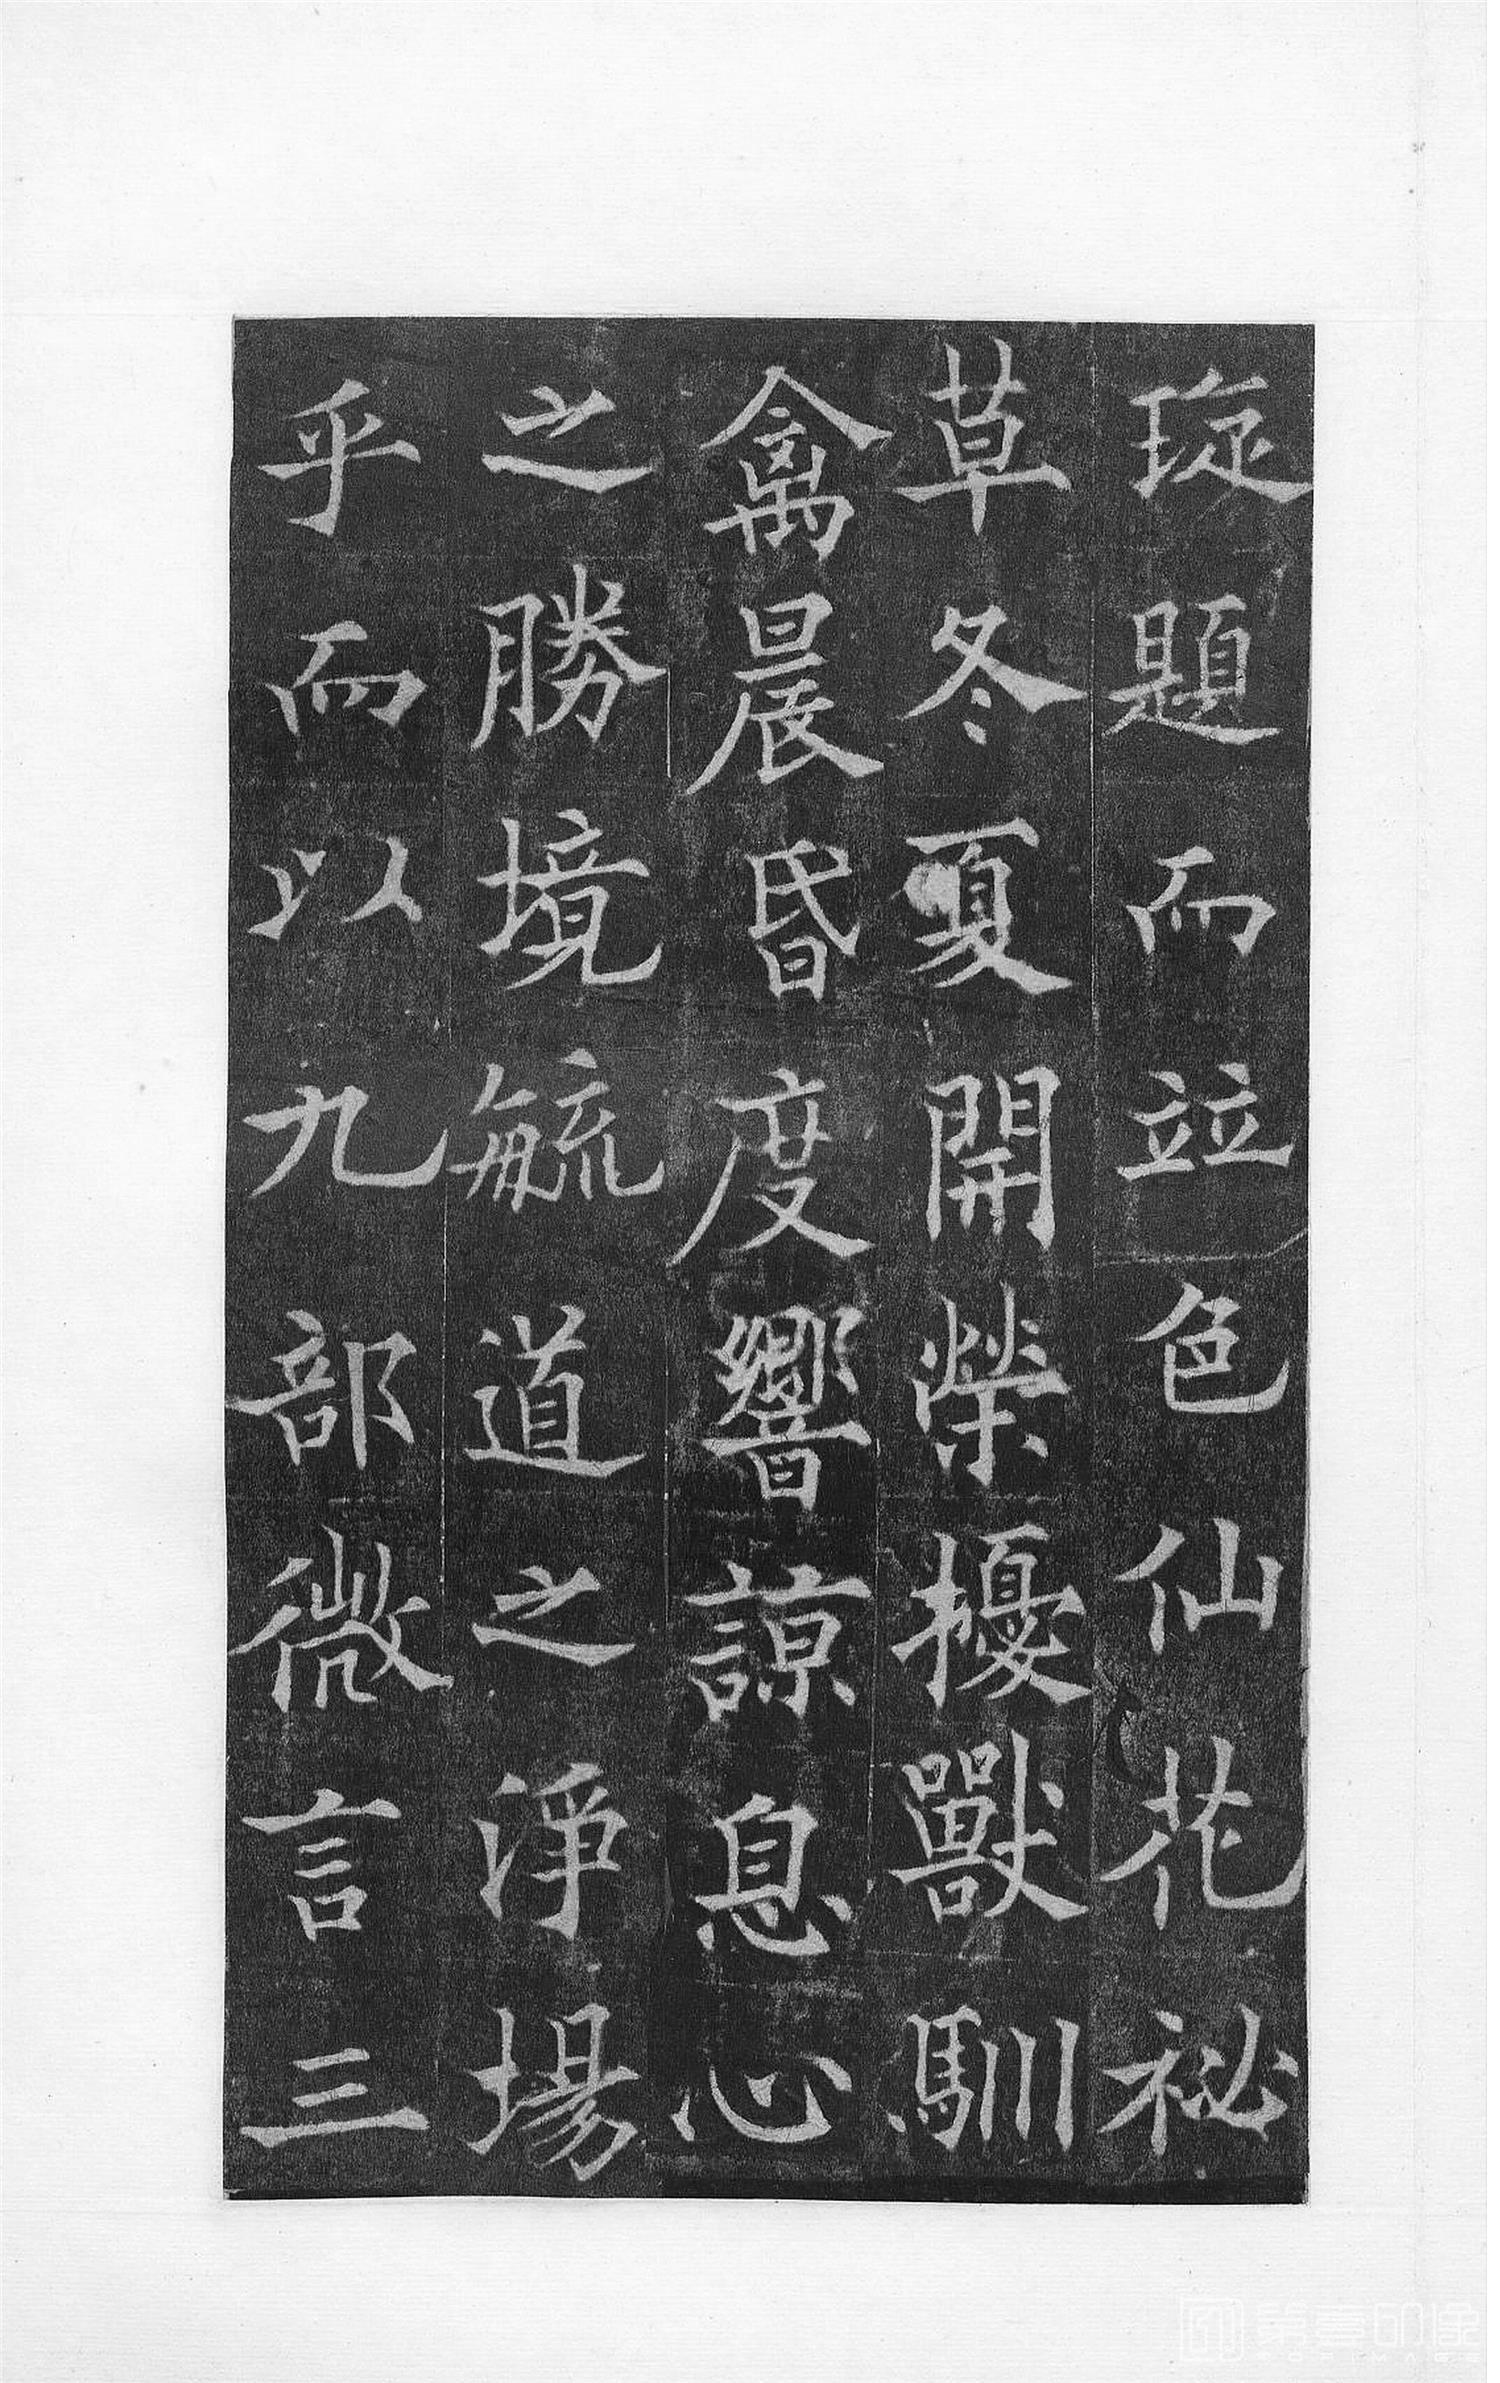 琁題而並色仙花秘
草冬夏開榮擾獸馴
禽晨昏度響諒息心
之勝境毓道之淨場
乎而以九部微言三
第壹印像
TOPIMAGE